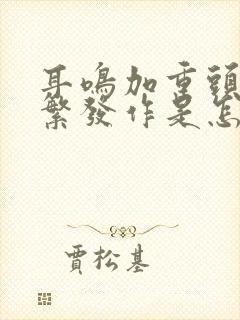 耳鳴加重頭
繁發作是怎
賈松基